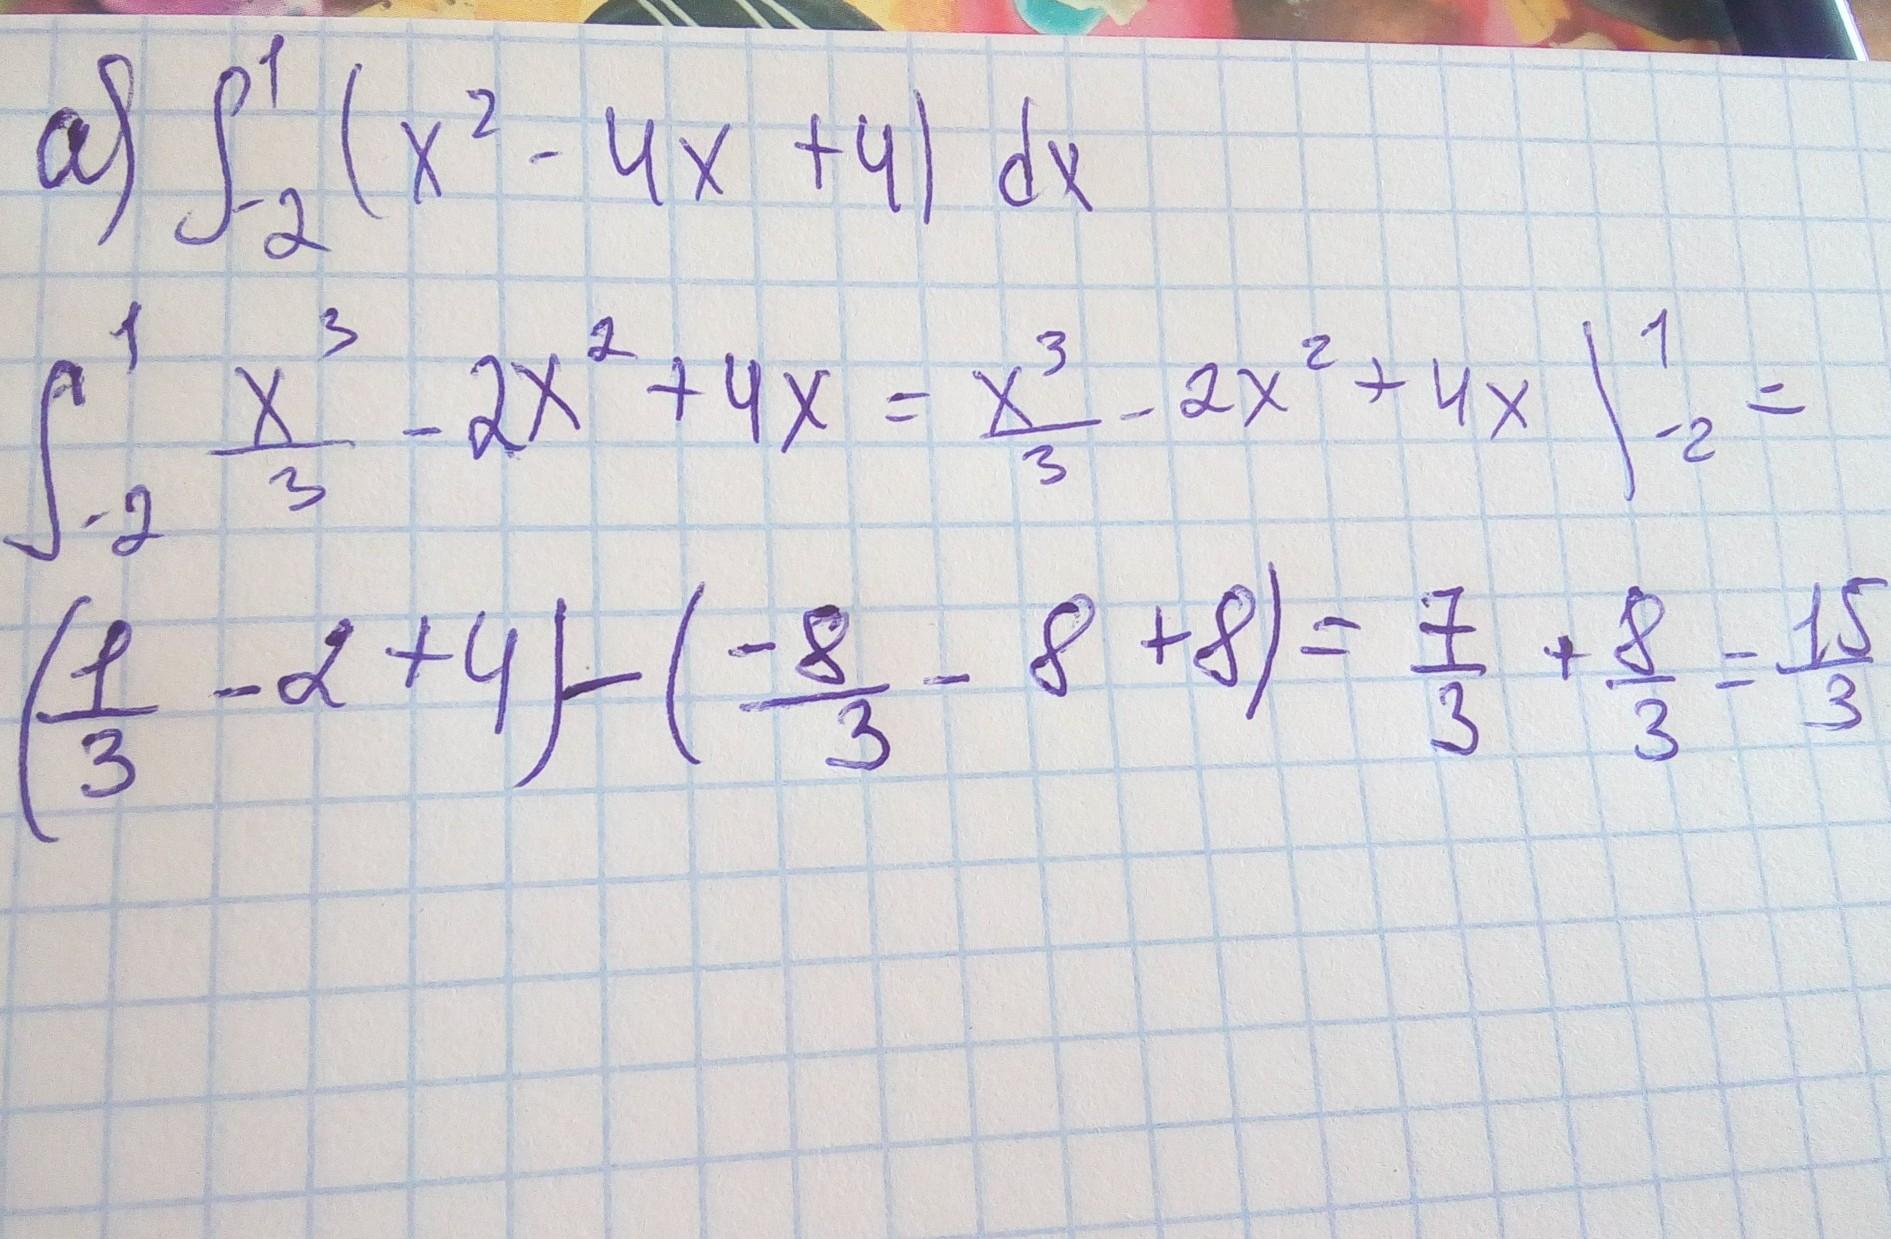 а) ∫₋₂¹ (x² - 4x + 4) dx
∫₋₂¹ x³/3 - 2x² + 4x = x³/3 - 2x² + 4x |₋₂¹ =
(1/3 - 2 + 4) - (-8/3 - 8 + 8) = 7/3 + 8/3 = 15/3